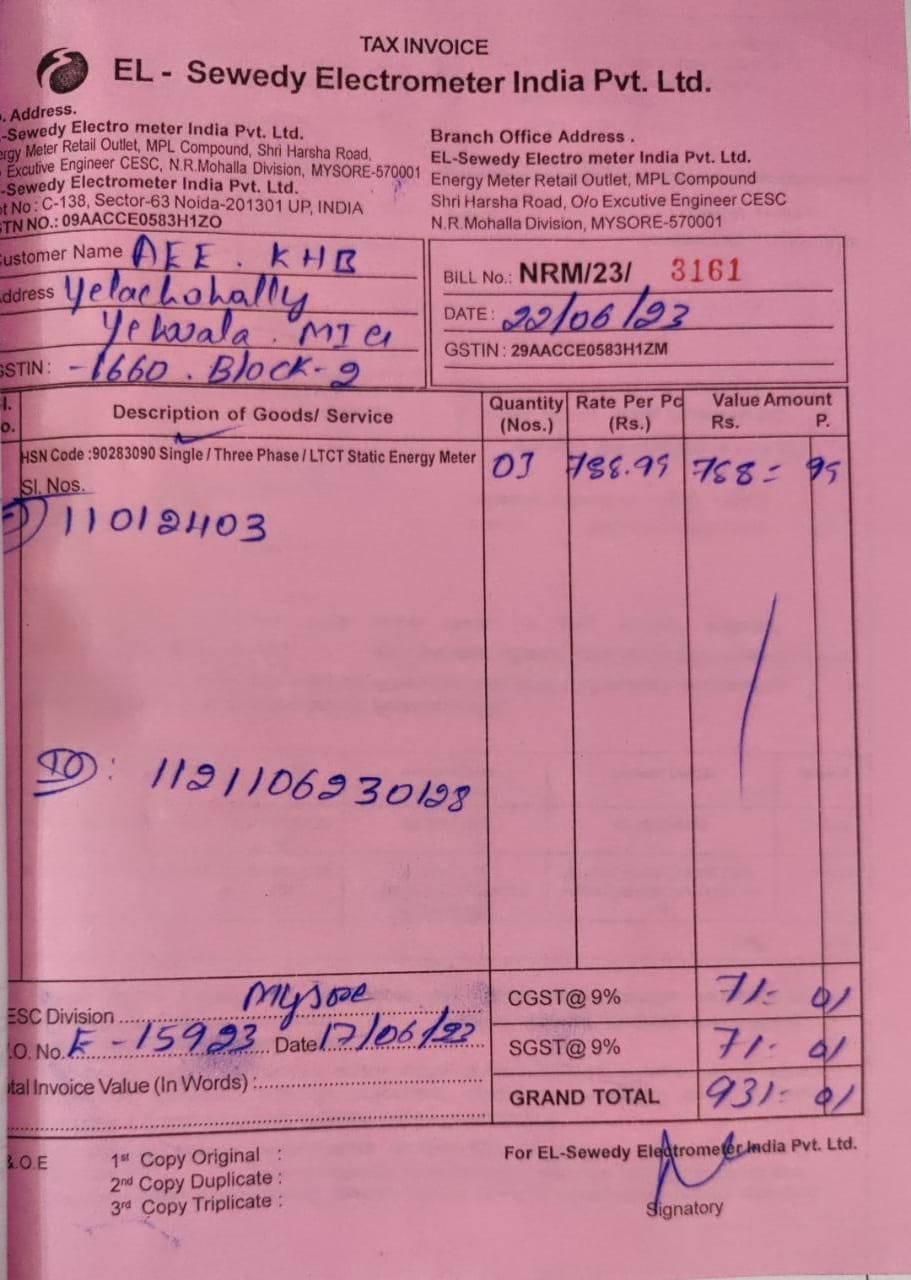 TAX INVOICE
EL - Sewedy Electrometer India Pvt. Ltd.
. Address.
-Sewedy Electro meter India Pvt. Ltd.
ergy Meter Retail Outlet, MPL Compound, Shri Harsha Road,
Excutive Engineer CESC, N.R.Mohalla Division, MYSORE-570001
-Sewedy Electrometer India Pvt. Ltd.
ot No : C-138, Sector-63 Noida-201301 UP, INDIA
STN NO.: 09AACCE0583H1ZO
Branch Office Address .
EL-Sewedy Electro meter India Pvt. Ltd.
Energy Meter Retail Outlet, MPL Compound
Shri Harsha Road, O/o Excutive Engineer CESC
N.R.Mohalla Division, MYSORE-570001
ustomer Name AEE . KHB
ddress Yelachohally
Yelwala . MIG
GSTIN : -1660 . Block-2
BILL No.: NRM/23/ 3161
DATE : 22/06/23
GSTIN : 29AACCE0583H1ZM
l. Description of Goods/ Service Quantity Rate Per Pc Value Amount
o. (Nos.) (Rs.) Rs. P.
HSN Code :90283090 Single / Three Phase / LTCT Static Energy Meter 01 788.99 788= 99
Sl. Nos.
1) 11012403
ID : 1121106230128
ESC Division Mysore
.O. No. E-15923 Date 17/06/23
otal Invoice Value (In Words) :
CGST@ 9% 71- 01
SGST@ 9% 71- 01
GRAND TOTAL 931- 01
&.O.E
1st Copy Original :
2nd Copy Duplicate :
3rd Copy Triplicate :
For EL-Sewedy Electrometer India Pvt. Ltd.
Signatory